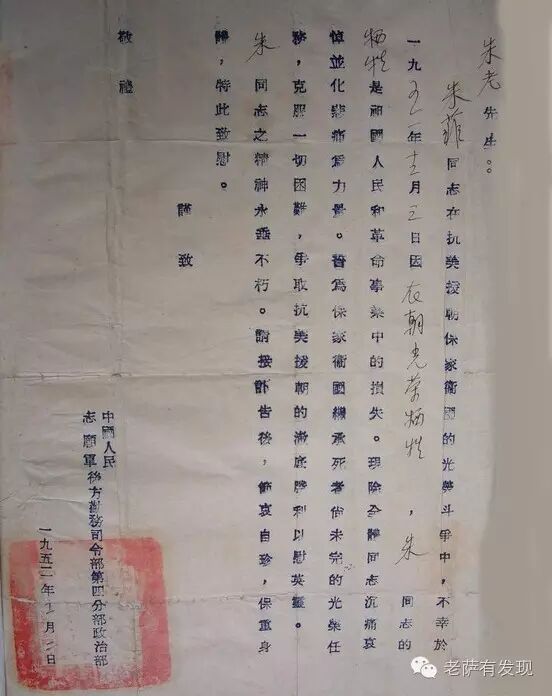 朱老先生：
朱同志在抗美援朝保家衛國的光榮斗爭中，不幸於
一九五一年十二月三日因在朝光荣牺牲，朱同志的
牺牲是祖國人民和革命事業中的損失。現除全體同志沉痛哀
悼並化悲痛爲力量。誓爲保家衛國繼承死者尚未完的光榮任
務，克服一切困難，爭取抗美援朝的澈底勝利以慰英靈。
朱同志之精神永垂不朽。請接訃告後，節哀自珍，保重身
體，特此致慰。
謹致
敬禮
中國人民
志願軍後方勤務司令部第四分部政治部
一九五二年月日
老萨有发现